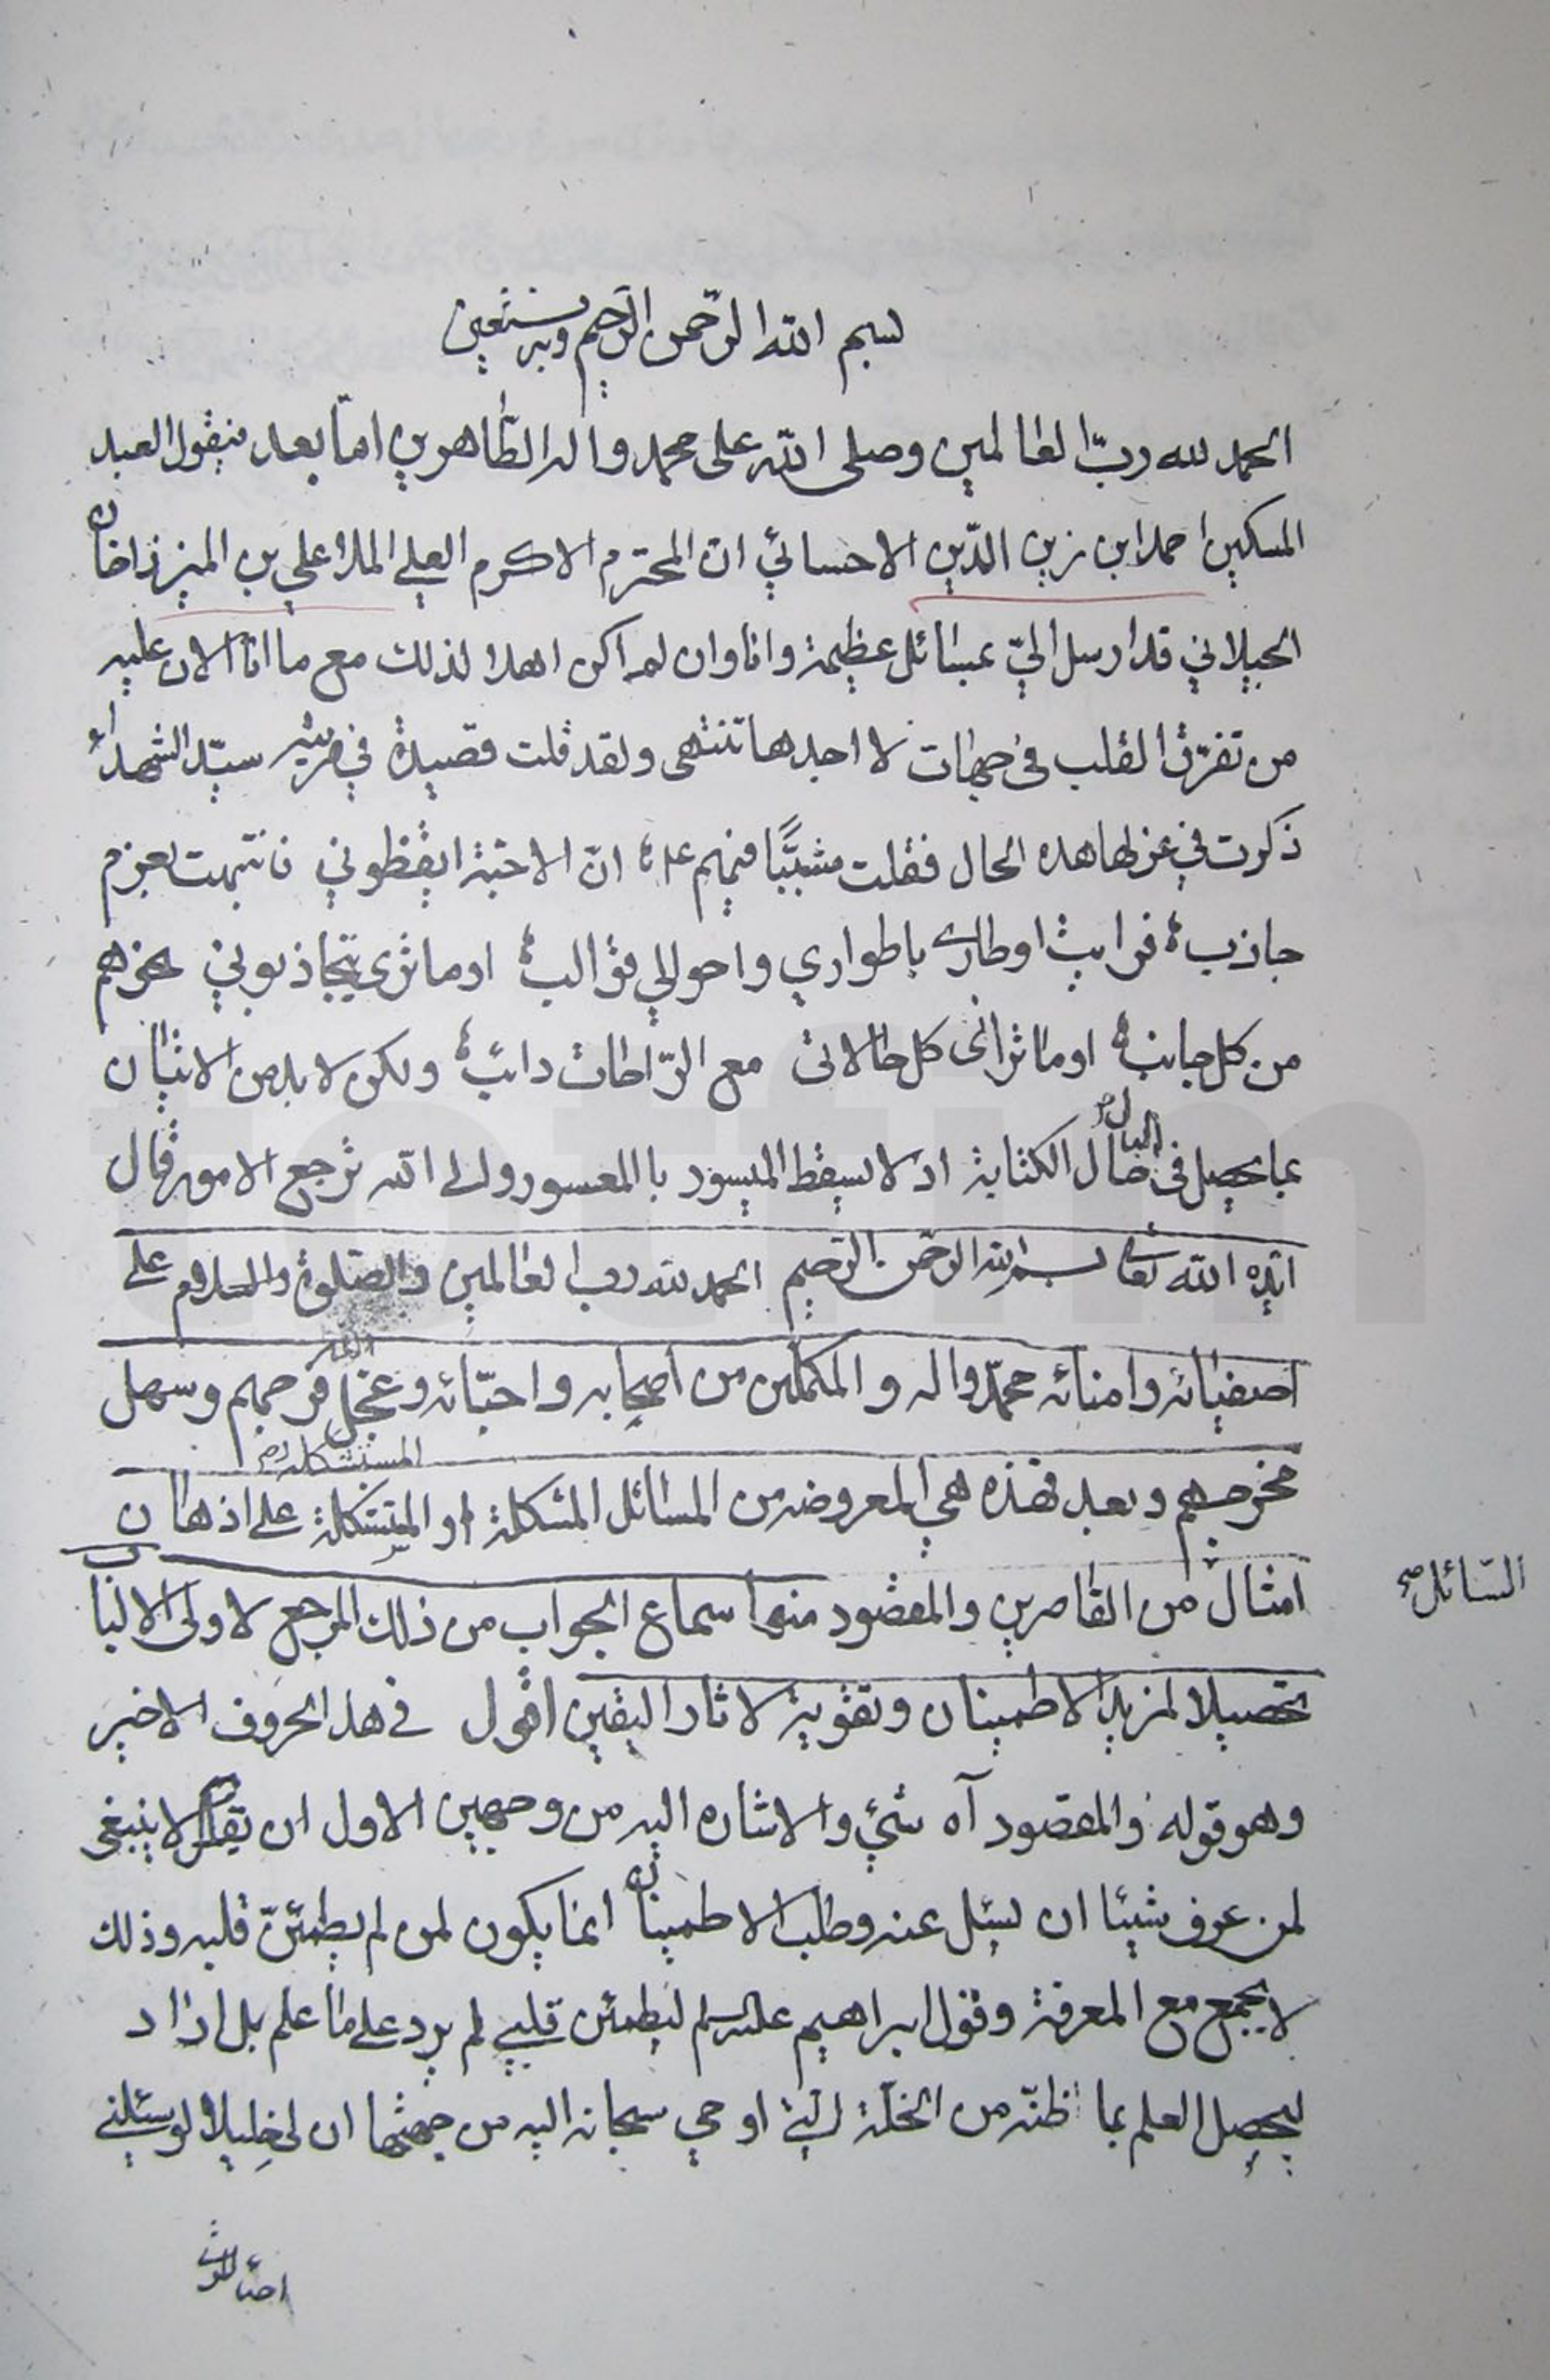 بسم الله الرّحمن الرّحيم وبه نستعين
الحمد لله ربّ العالمين وصلى الله على محمد واله الطّاهرين امّا بعد فيقول العبد
المسكين احمد ابن زين الدّين الاحسائي ان المحترم الاكرم العلي الملا علي بن الميرزا خان
الجيلاني قد ارسل اليّ بمسائل عظيمة وانا وان لم اكن اهلا لذلك مع ما انا الان عليه
من تفرّق القلب في جهات لا احدها تنتهى ولقد قلت قصيدة في مرثيه سيّد الشهداء
ذكرت في غزلها هذه الحال فقلت مشبّبًا فيهم ع انّ الاحبّة ايقظوني فانتبهت بعزم
جاذبه فرايت اوطاري باطواري واحوالي قوالبه اوما ترى يتجاذبوني بحزهم
من كل جانبه اوما تراني كل حالاتي مع الرّاحات دائبه ولكن لا بد من الاتيان
بما يحصل في البال حال الكتابة اذ لا يسقط الميسور با المعسور والى الله ترجع الامور قال
ايّده الله تعالى بسم الله الرحمن الرّحيم الحمد لله رب العالمين والصّلوة والسلام على
اصفيائه وامنائه محمّد واله والمكملين من اصحابه واحبّائه وعجّل فرجهم وسهل
مخرجهم وبعد فهذه هي المعروضه من المسائل المشكلة او المتشكلة على اذهان
المستشكلة
امثال من القاصرين والمقصود منها سماع الجواب من ذلك المرجع لاولى الالباب
السّائل صح
تحصيلا لمزيد الاطمينان وتقوية لاثار اليقين اقول في هذا الحروف الاخير
وهو قوله والمقصود آه شئ والاشاره اليه من وجهين الاول ان يقال لا ينبغى
لمن عرف شيئا ان يسئل عنه وطلب الاطمينان انما يكون لمن لم يطمئنّ قلبه وذلك
لا يجمع مع المعرفة وقول ابراهيم عليه السلم ليطمئن قلبي لم يرد على ما علم بل اراد
ليحصل العلم بما ظنّه من الخلّة التي اوحي سبحانه اليه من جهتها ان لى خليلا لو سئلني